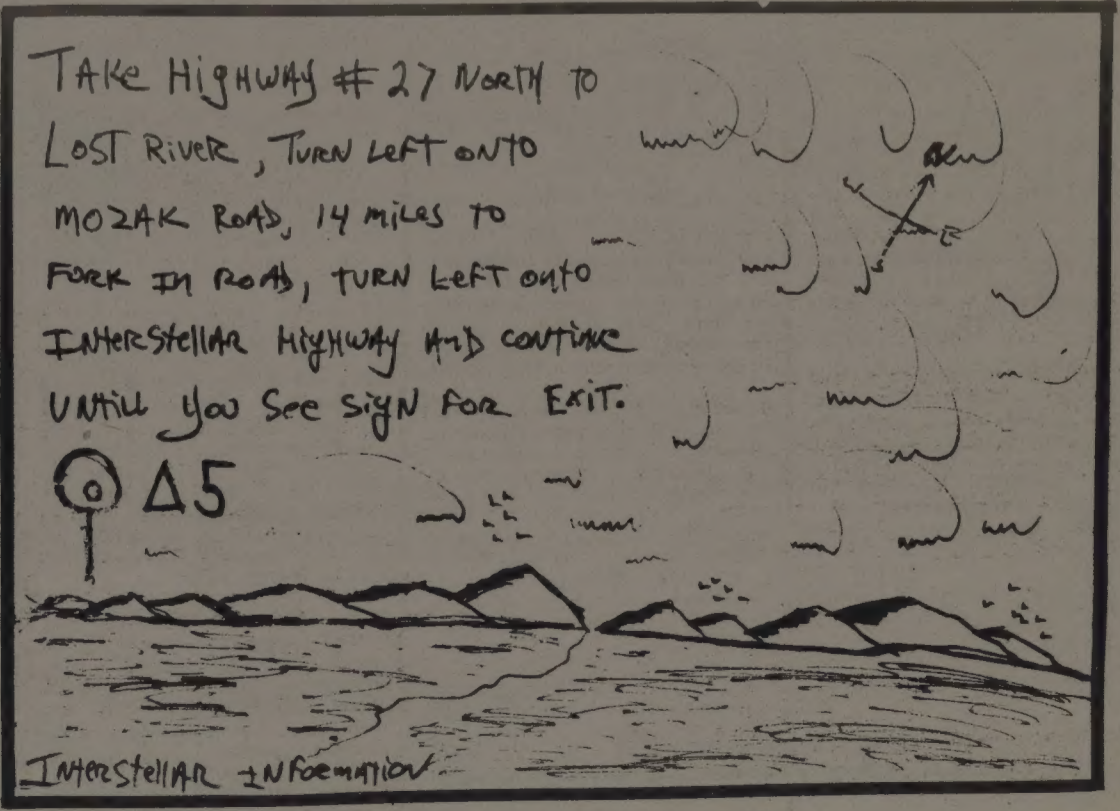 TAKE HIGHWAY # 27 NORTH TO
LOST RIVER, TURN LEFT ONTO
MOZAK ROAD, 14 MILES TO
FORK IN ROAD, TURN LEFT ONTO
INTERSTELLAR HIGHWAY AND CONTINUE
UNTILL YOU SEE SIGN FOR EXIT.
Δ5
INTERSTELLAR INFORMATION